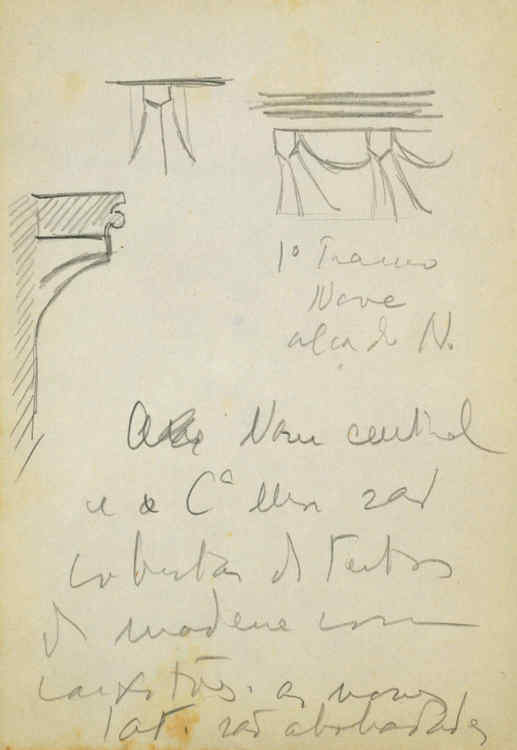 1º Tramo
Nave
alçado N.
A Nave central
e a Cª Mor são
cobertas d tectos
d madeira com
caixotões. as naves
lat. são abobadadas